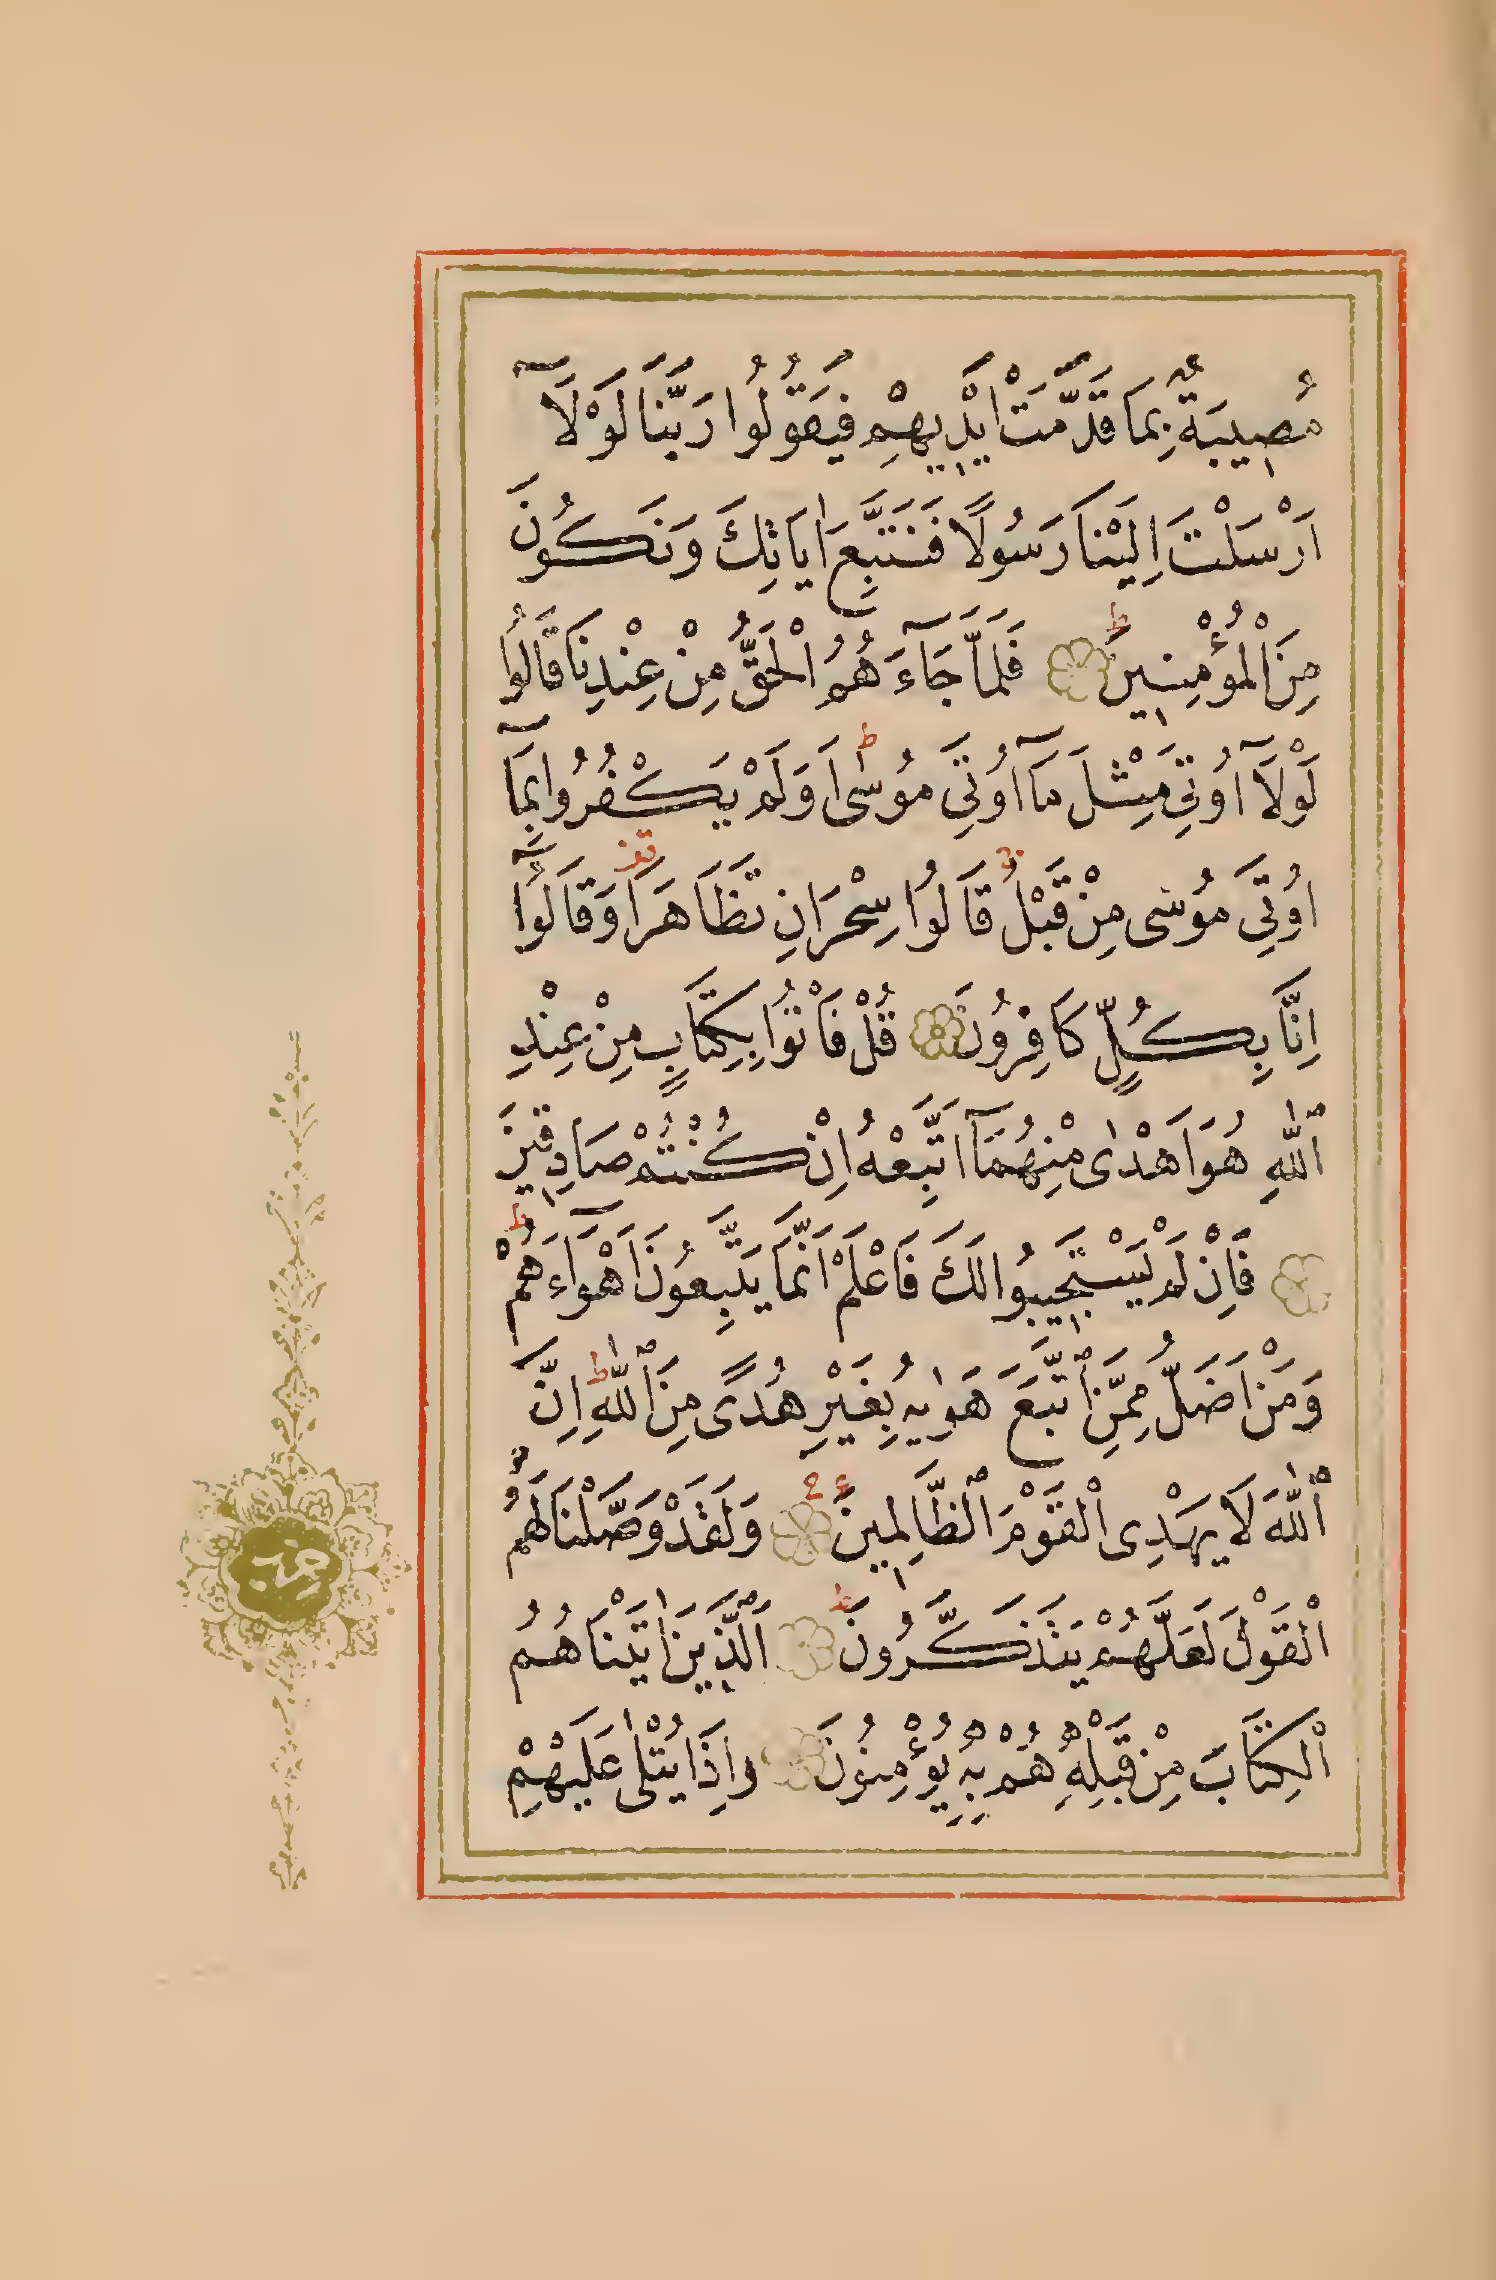 مُصِيبَةٌ بِمَا قَدَّمَتْ اَيْدِيهِمْ فَيَقُولُوا رَبَّنَا لَوْلَآ
اَرْسَلْتَ اِلَيْنَا رَسُولًا فَنَتَّبِعَ اٰيَاتِكَ وَنَكُونَ
مِنَ الْمُؤْمِنِينَ ط فَلَمَّا جَآءَهُمُ الْحَقُّ مِنْ عِنْدِنَا قَالُوا
لَوْلَآ اُوتِيَ مِثْلَ مَآ اُوتِيَ مُوسٰى ط اَوَلَمْ يَكْفُرُوا بِمَآ
اُوتِيَ مُوسٰى مِنْ قَبْلُ قَالُوا سِحْرَانِ تَظَاهَرَا قف وَقَالُوٓا
اِنَّا بِكُلٍّ كَافِرُونَ قُلْ فَأْتُوا بِكِتَابٍ مِنْ عِنْدِ
ٱللّٰهِ هُوَ اَهْدٰى مِنْهُمَآ اَتَّبِعْهُ اِنْ كُنْتُمْ صَادِقِينَ
فَاِنْ لَمْ يَسْتَجِيبُوا لَكَ فَاعْلَمْ اَنَّمَا يَتَّبِعُونَ اَهْوَآءَهُمْ ط
وَمَنْ اَضَلُّ مِمَّنِ ٱتَّبَعَ هَوٰيهُ بِغَيْرِ هُدًى مِنَ ٱللّٰهِ ط اِنَّ
ٱللّٰهَ لَا يَهْدِى الْقَوْمَ ٱلظَّالِمِينَ ع وَلَقَدْ وَصَّلْنَا لَهُمُ
الْقَوْلَ لَعَلَّهُمْ يَتَذَكَّرُونَ ط اَلَّذِينَ اٰتَيْنَاهُمُ
الْكِتَابَ مِنْ قَبْلِهِ هُمْ بِهِ يُؤْمِنُونَ وَاِذَا يُتْلٰى عَلَيْهِمْ